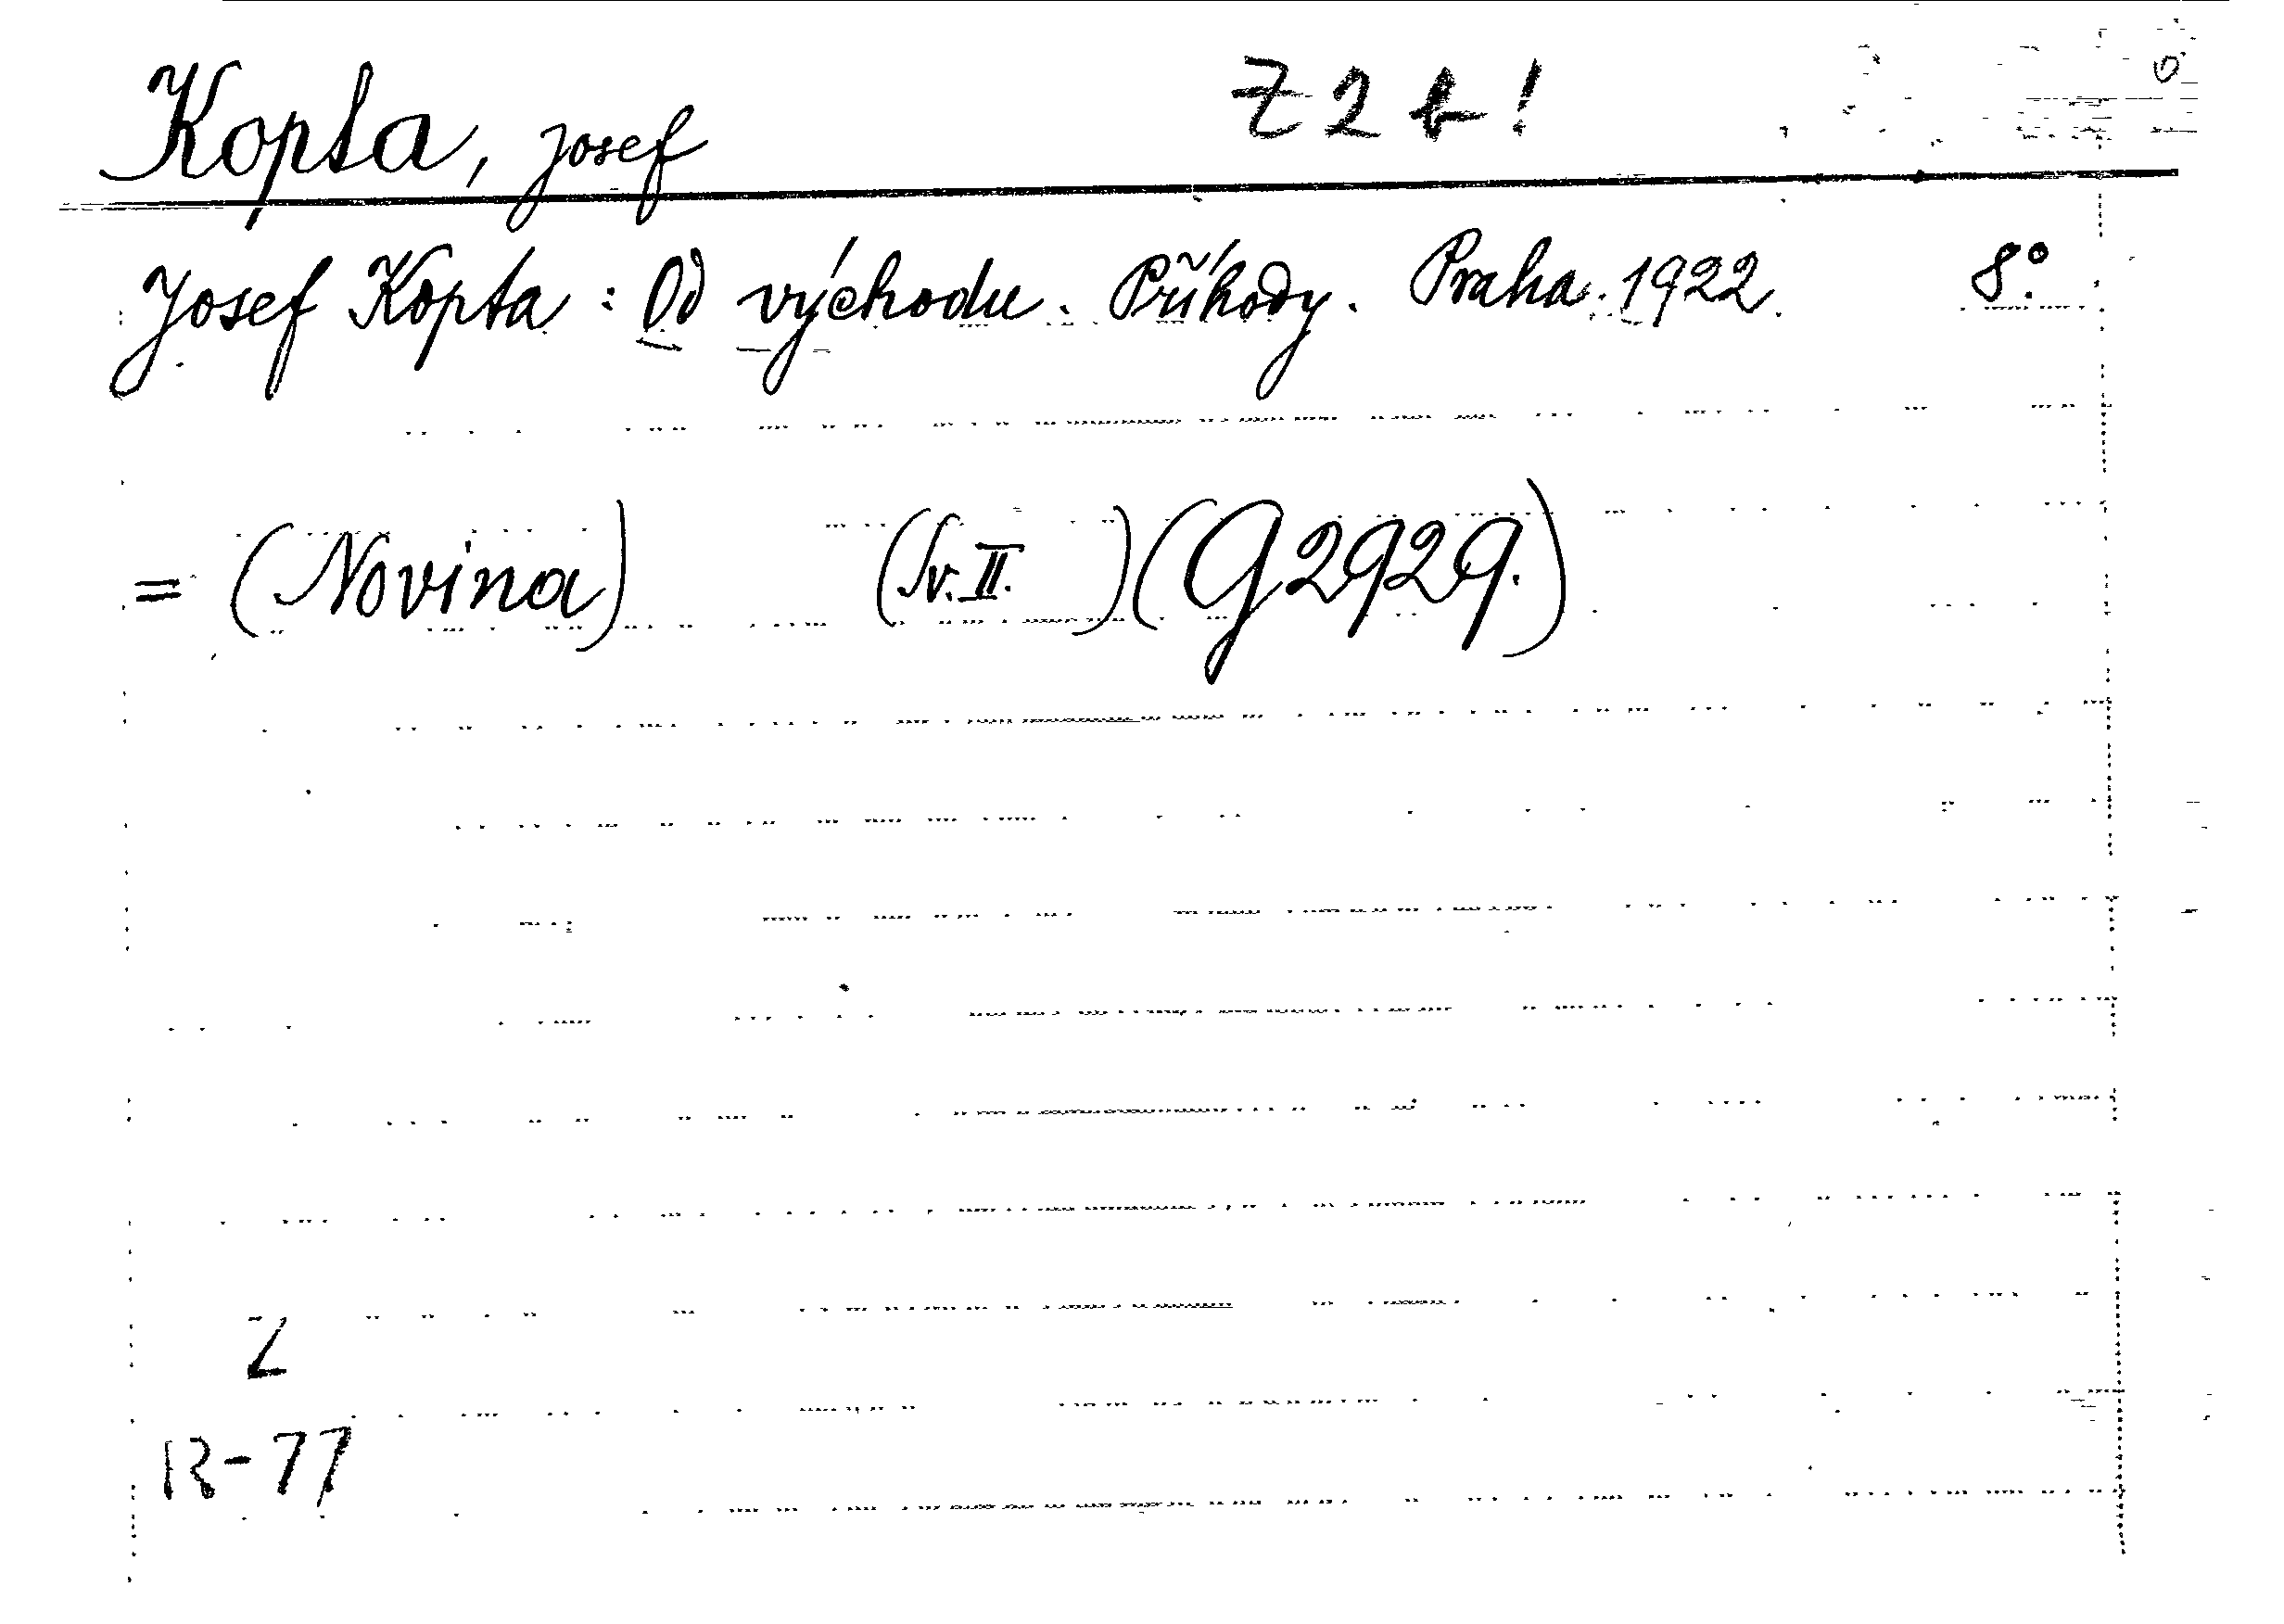 Kopta, Josef Z 2 b!
Josef Kopta: Od východu. Příhody. Praha. 1922. 8°.
= (Novina) (Sv. II. ) (G 2929.)
Z
R-77